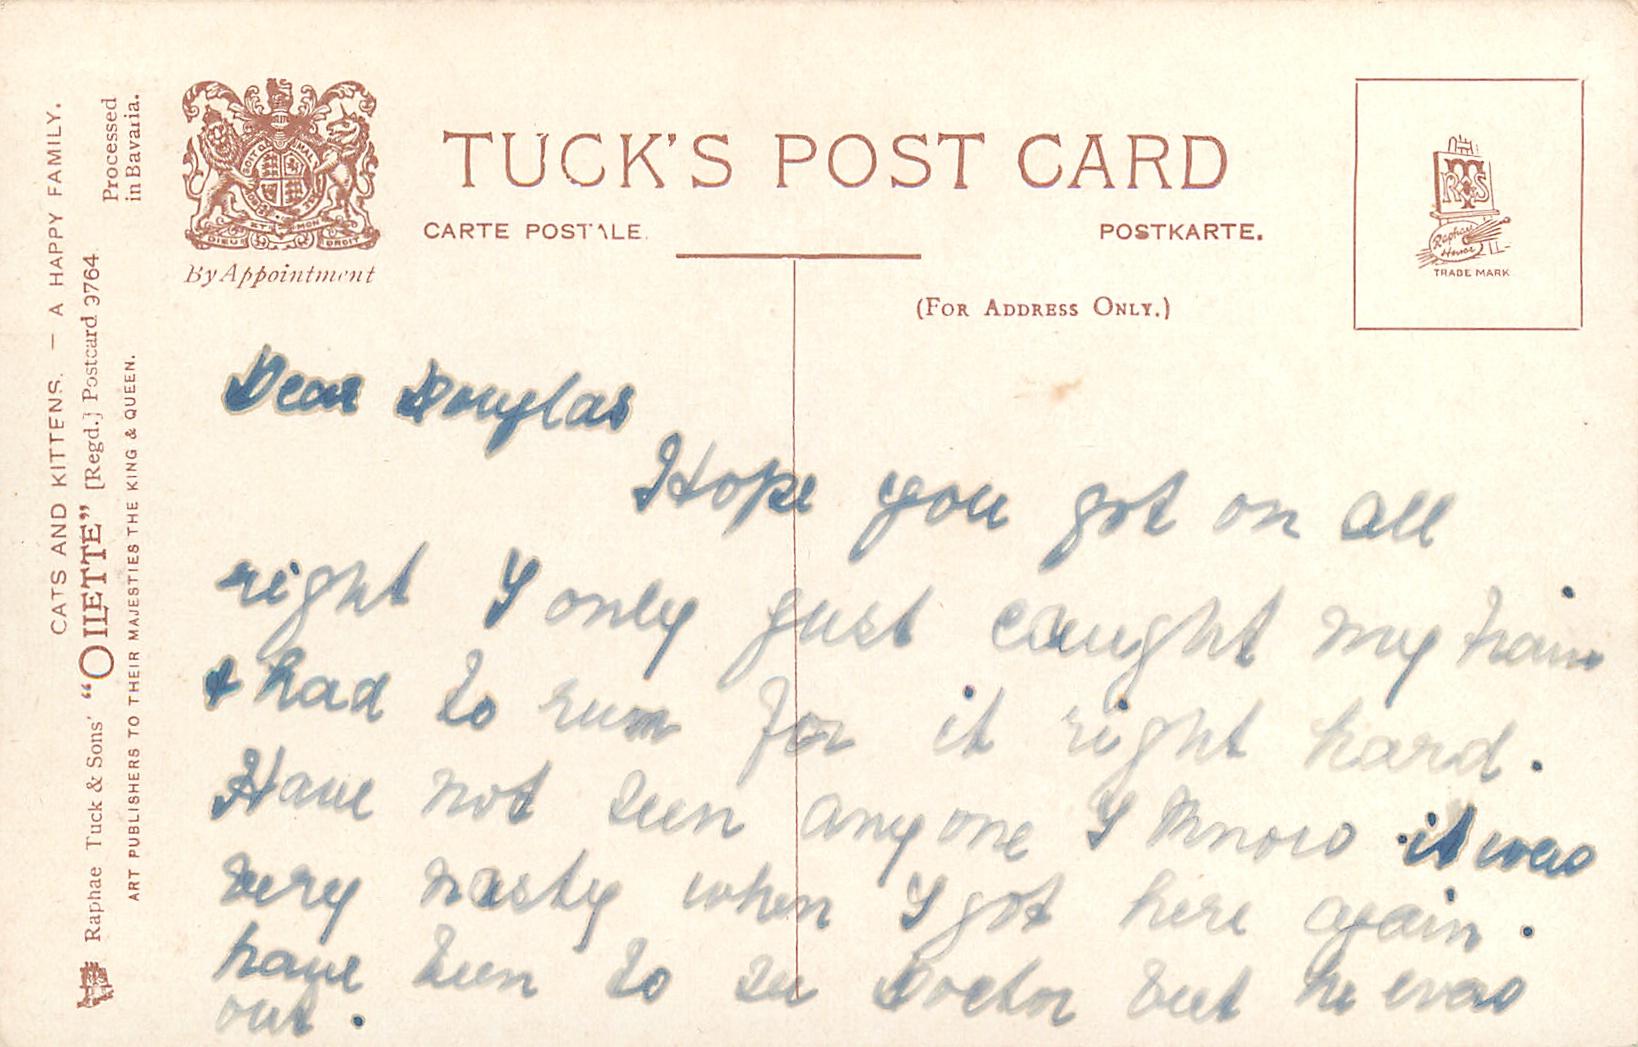 CATS AND KITTENS. — A HAPPY FAMILY.
Raphae Tuck & Sons' "OILETTE" [Regd.] Postcard 9764
ART PUBLISHERS TO THEIR MAJESTIES THE KING & QUEEN.
Processed
in Bavaria.
DIEU ET MON DROIT
By Appointment
TUCK'S POST CARD
CARTE POSTALE.
POSTKARTE.
(FOR ADDRESS ONLY.)
RTS
Raphael
House
TRADE MARK
Dear Douglas
Hope you got on all
right I only just caught my train
& had to run for it right hard.
Have not seen anyone I know it was
very nasty when I got here again.
have been to see Doctor but he was
out.